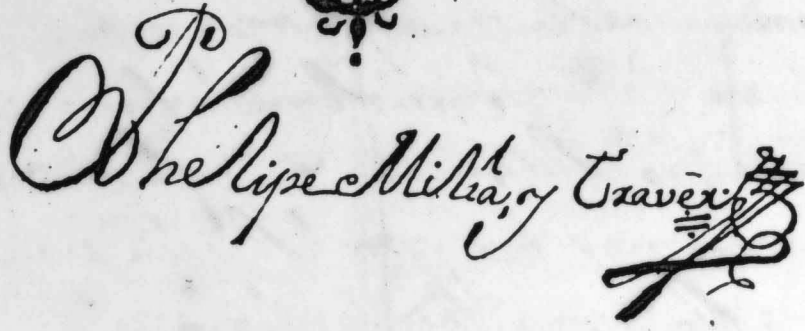 Phelipe Miliá, y Travèr.